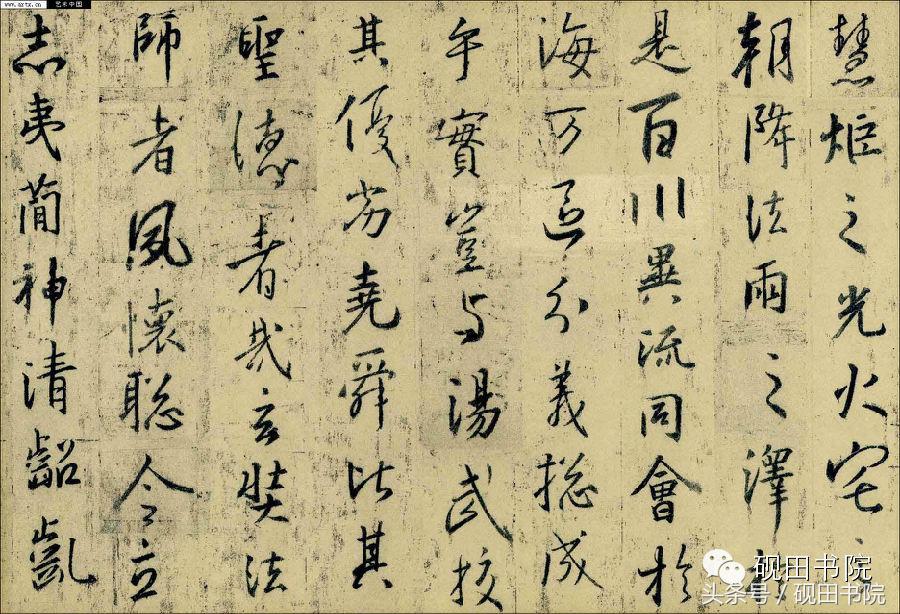 慧炬之光火宅
朝降法雨之澤於
是百川異流同會於
海万區分義揔成
乎實豈与湯武挍
其優劣堯舜比其
聖德者哉玄奘法
師者夙懷聰令立
志夷簡神清齠齔
www.artx.cn 艺术中国
砚田书院
头条号/砚田书院